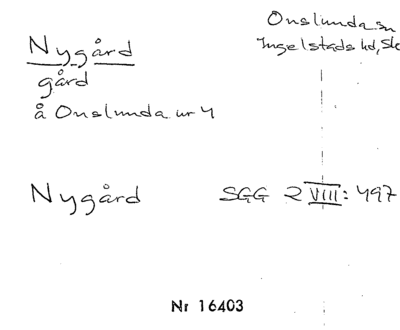 Onslunda sn
Ingelstads hd, Sk
Nygård
gård
å Onslunda nr 4
Nygård SGG 2 VIII: 497
Nr 16403